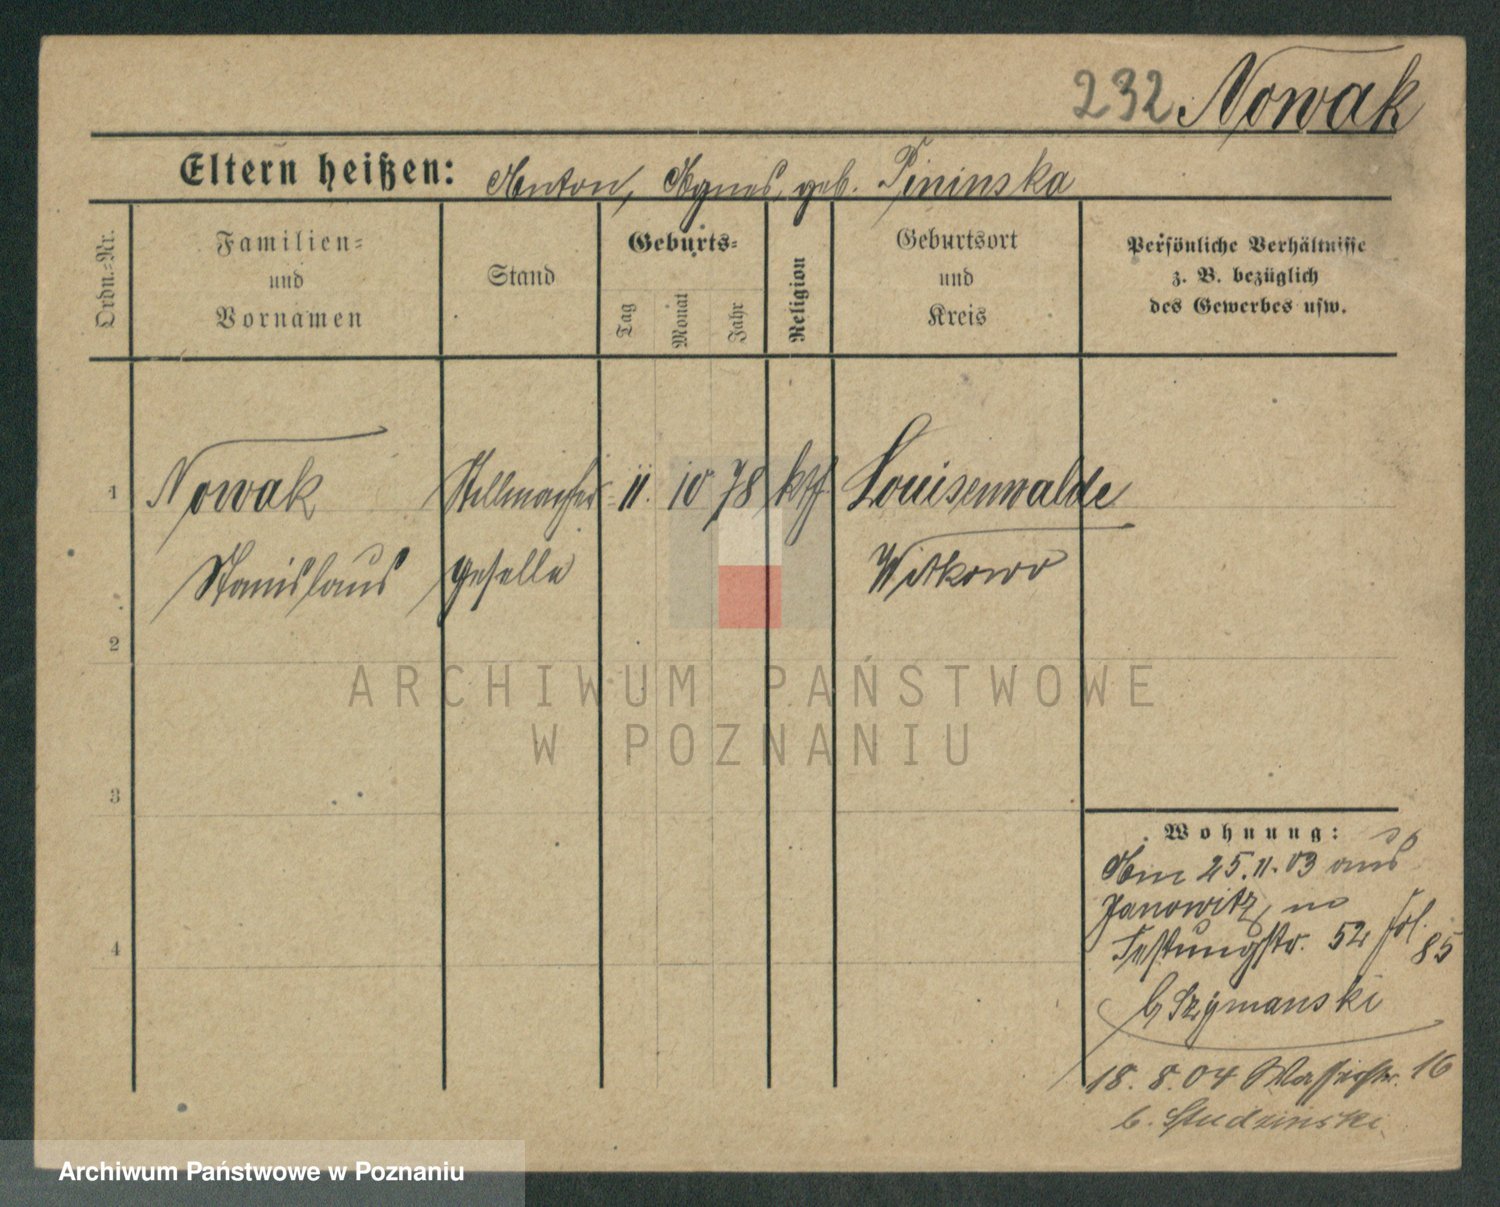 232 Nowak
Eltern heißen: Anton, Agnes, geb. Pininska
Ordn.-Nr.
Familien-
und
Vornamen
Stand
Geburts-
Tag
Monat
Jahr
Religion
Geburtsort
und
Kreis
Persönliche Verhältnisse
z. B. bezüglich
des Gewerbes usw.
1 Nowak Stellmacher 11. 10 78 kth Louisenwalde
Stanislaus geselle Witkowo
2
3
4
Wohnung:
Am 25.11.03 aus
Janowitz, in
Festungstr. 52 fol.
85
b Szymanski
18. 8. 04 Wasserstr. 16
b. Studzinski
ARCHIWUM PAŃSTWOWE
W POZNANIU
Archiwum Państwowe w Poznaniu